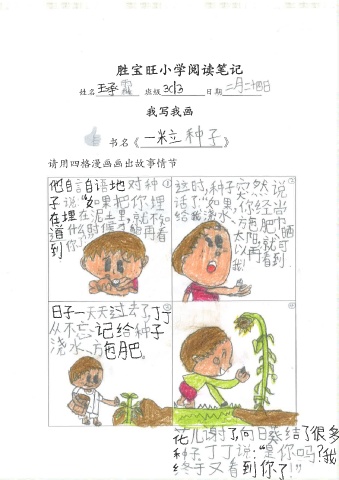 胜宝旺小学阅读笔记
姓名 王承霖 班级 3C13 日期 二月二十四日
我写我画
书名《一粒种子》
请用四格漫画画出故事情节
他自言自语地对种
子说:"如果把你埋
在埋在泥土里,就不知
道什么时候才能再看
到你了。
这时,种子突然说
话了:"如果你经常
给我浇水、施肥
太阳
以再看到
我!
日子一天天过去了,丁丁
从不忘记给种子
浇水、施肥。
花儿谢了,向日葵结了很多
种子。丁丁说:"是你吗?我
终于又看到你了!"